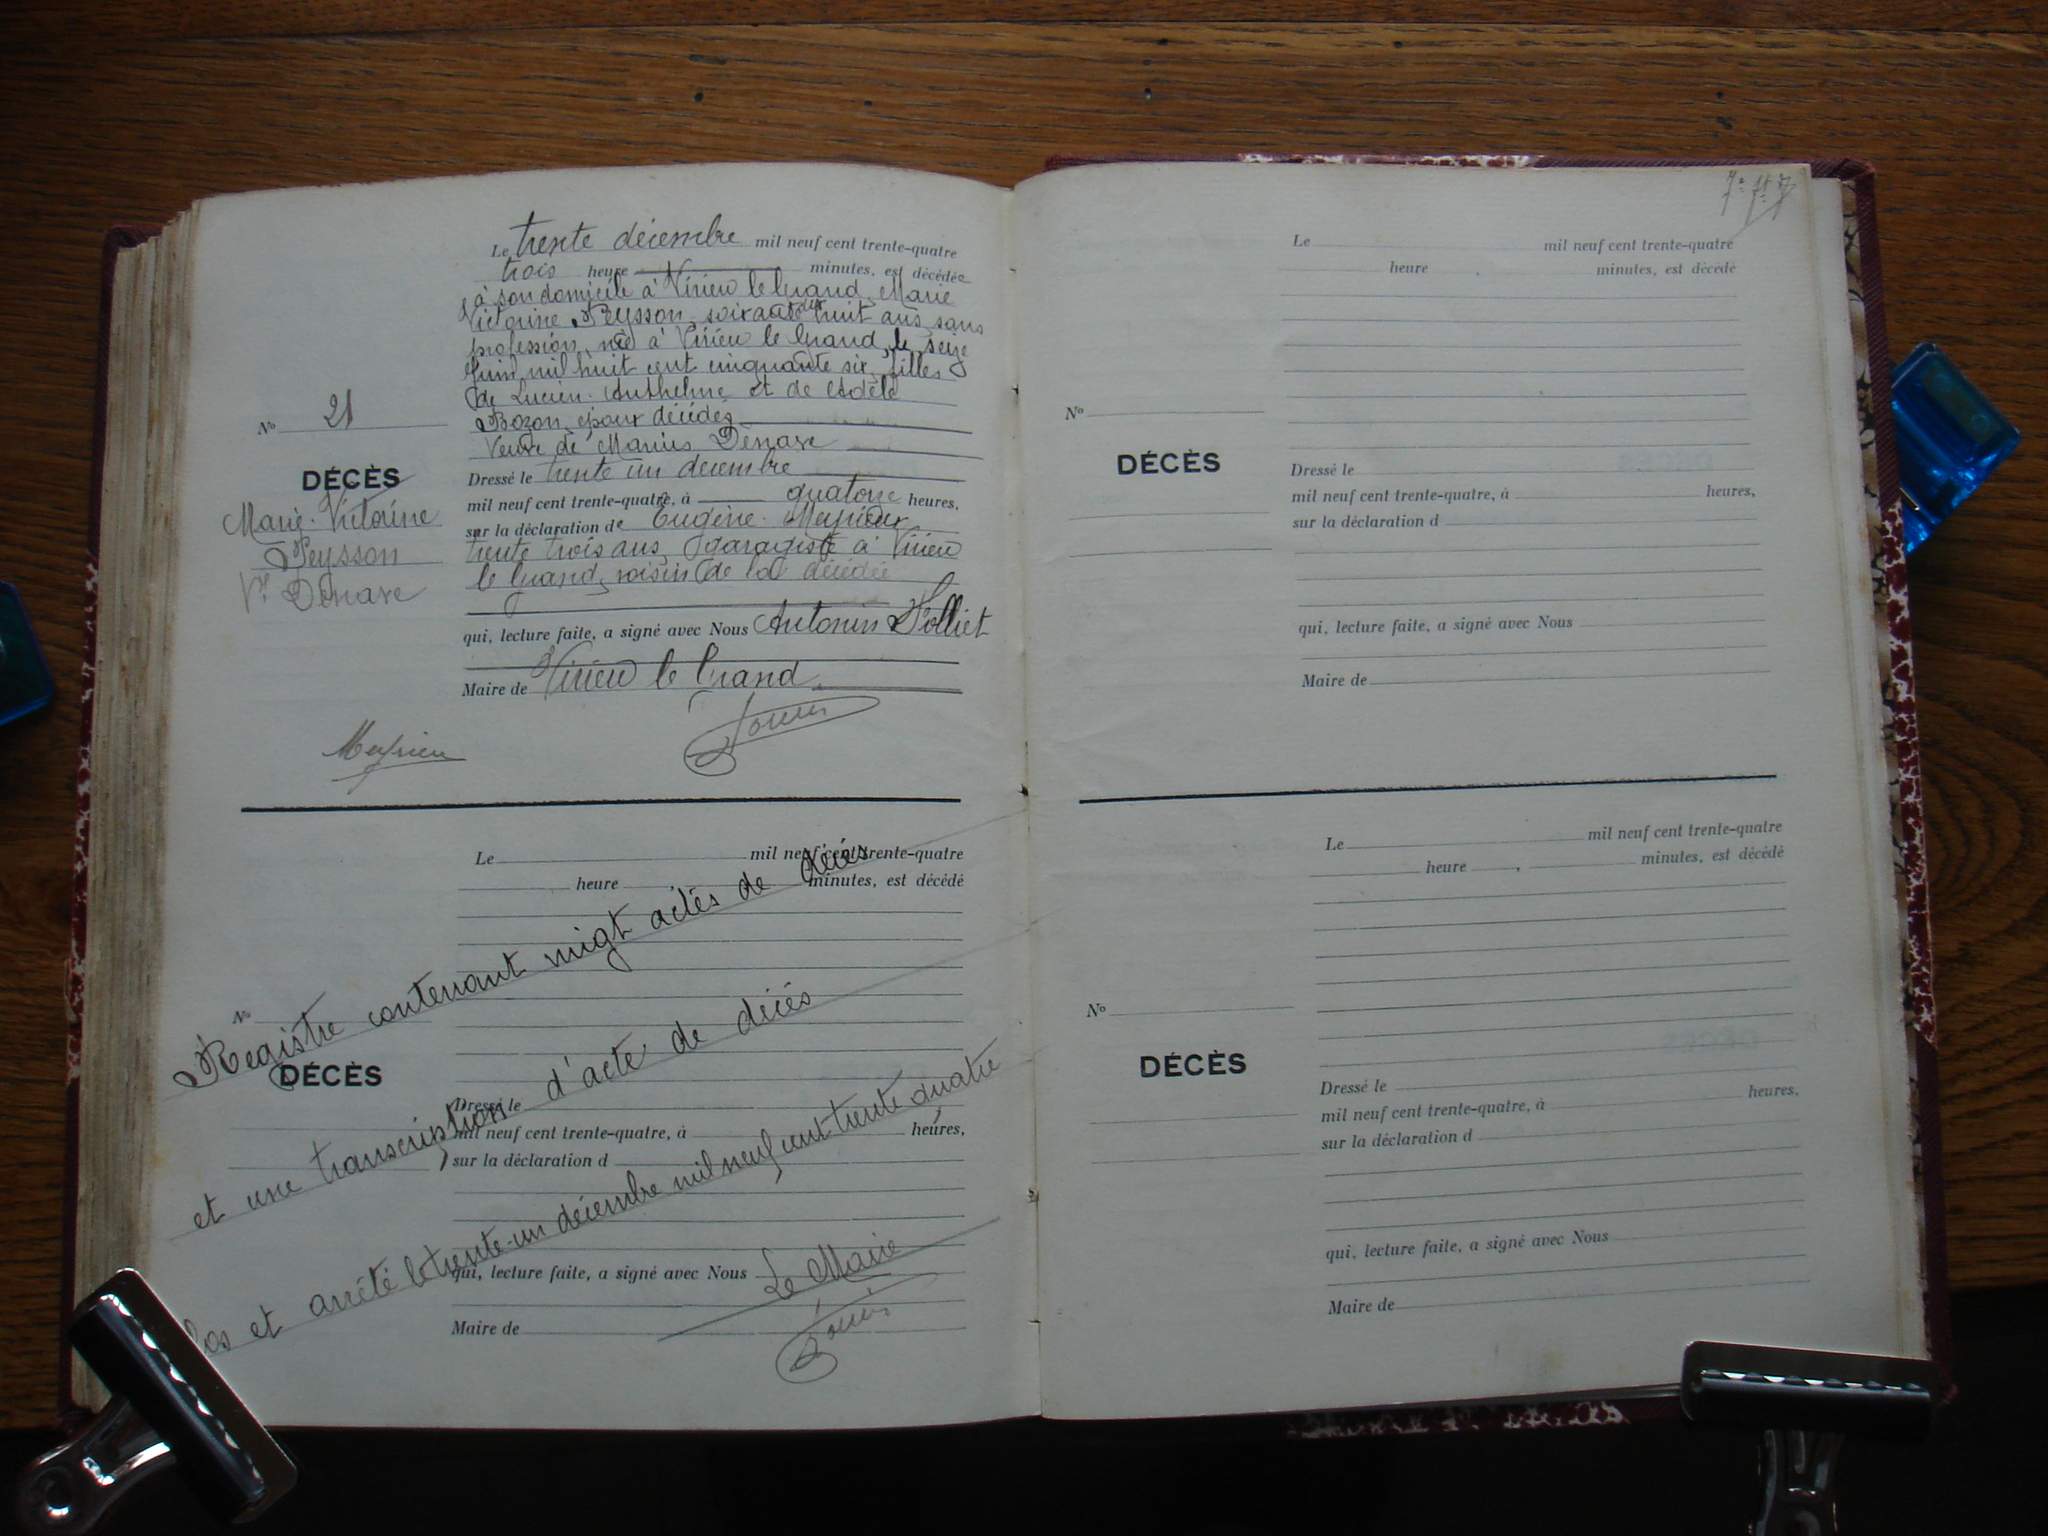 Le trente décembre mil neuf cent trente-quatre
trois heure minutes, est décédée
à son domicile à Virieu le Grand, Marie
Victorine Peysson, soixante dix huit ans, sans
profession, née à Virieu le Grand, le seize
Juin mil huit cent cinquante six, filles
de Lucien Anthelme et de Adèle
Bozon, époux décédés
Veuve de Marius Dénare
N° 21
DÉCÈS
Marie-Victorine
Peysson
Vve Dénare
Dressé le trente un décembre
mil neuf cent trente-quatre, à quatorze heures,
sur la déclaration de Eugène Meyrieux
trente trois ans, garagiste à Virieu
le Grand, voisin de la décédée
qui, lecture faite, a signé avec Nous Antonin Folliet
Maire de Virieu le Grand.
N°
DÉCÈS
Le mil neuf cent trente-quatre
heure minutes, est décédé
Dressé le
mil neuf cent trente-quatre, à heures,
sur la déclaration d
qui, lecture faite, a signé avec Nous
Maire de
Registre contenant vingt actes de décés
et une transcription d'acte de décés
los et arrêté le trente-un décembre mil neuf cent trente quatre
Le Maire
Le mil neuf cent trente-quatre
heure minutes, est décédé
N°
DÉCÈS
Dressé le
mil neuf cent trente-quatre, à heures,
sur la déclaration d
qui, lecture faite, a signé avec Nous
Maire de
Le mil neuf cent trente-quatre
heure minutes, est décédé
N°
DÉCÈS
Dressé le
mil neuf cent trente-quatre, à heures,
sur la déclaration d
qui, lecture faite, a signé avec Nous
Maire de